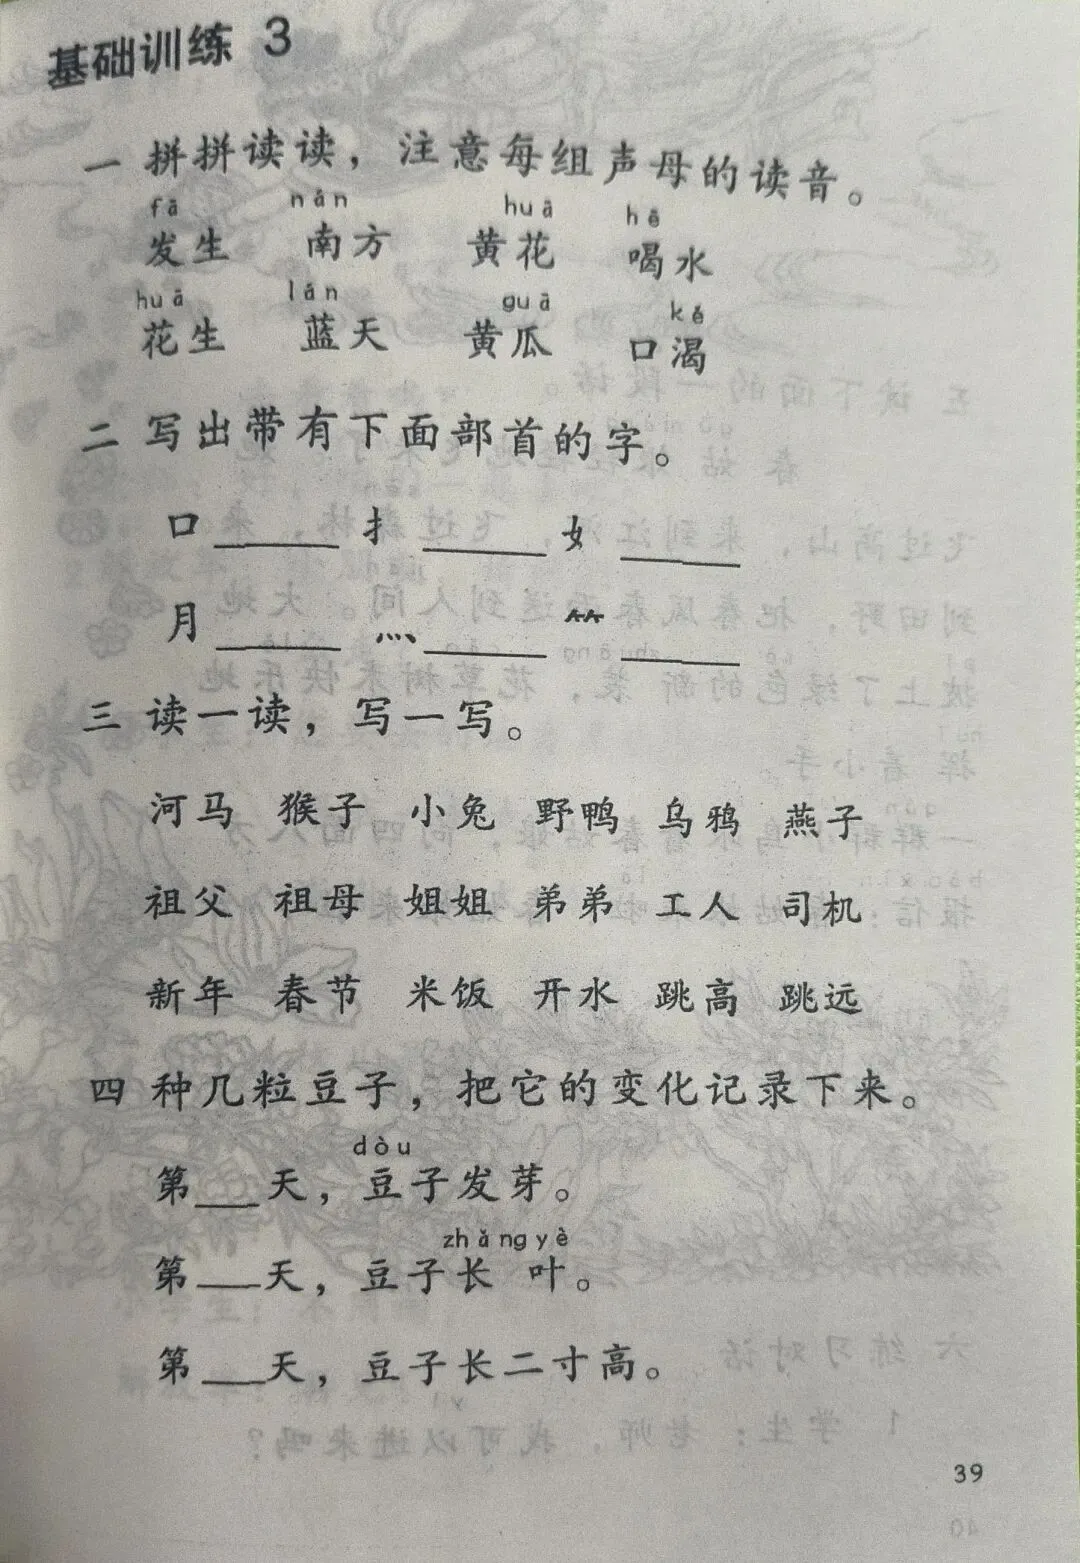 基础训练 3
一 拼拼读读，注意每组声母的读音。
fā nán huā hē
发生 南方 黄花 喝水
huā lán guā kě
花生 蓝天 黄瓜 口渴
二 写出带有下面部首的字。
口____ 扌____ 女____
月____ 灬____ ⺮____
三 读一读，写一写。
河马 猴子 小兔 野鸭 乌鸦 燕子
祖父 祖母 姐姐 弟弟 工人 司机
新年 春节 米饭 开水 跳高 跳远
四 种几粒豆子，把它的变化记录下来。
dòu
第___天，豆子发芽。
zhǎng yè
第___天，豆子长 叶。
第___天，豆子长二寸高。
39